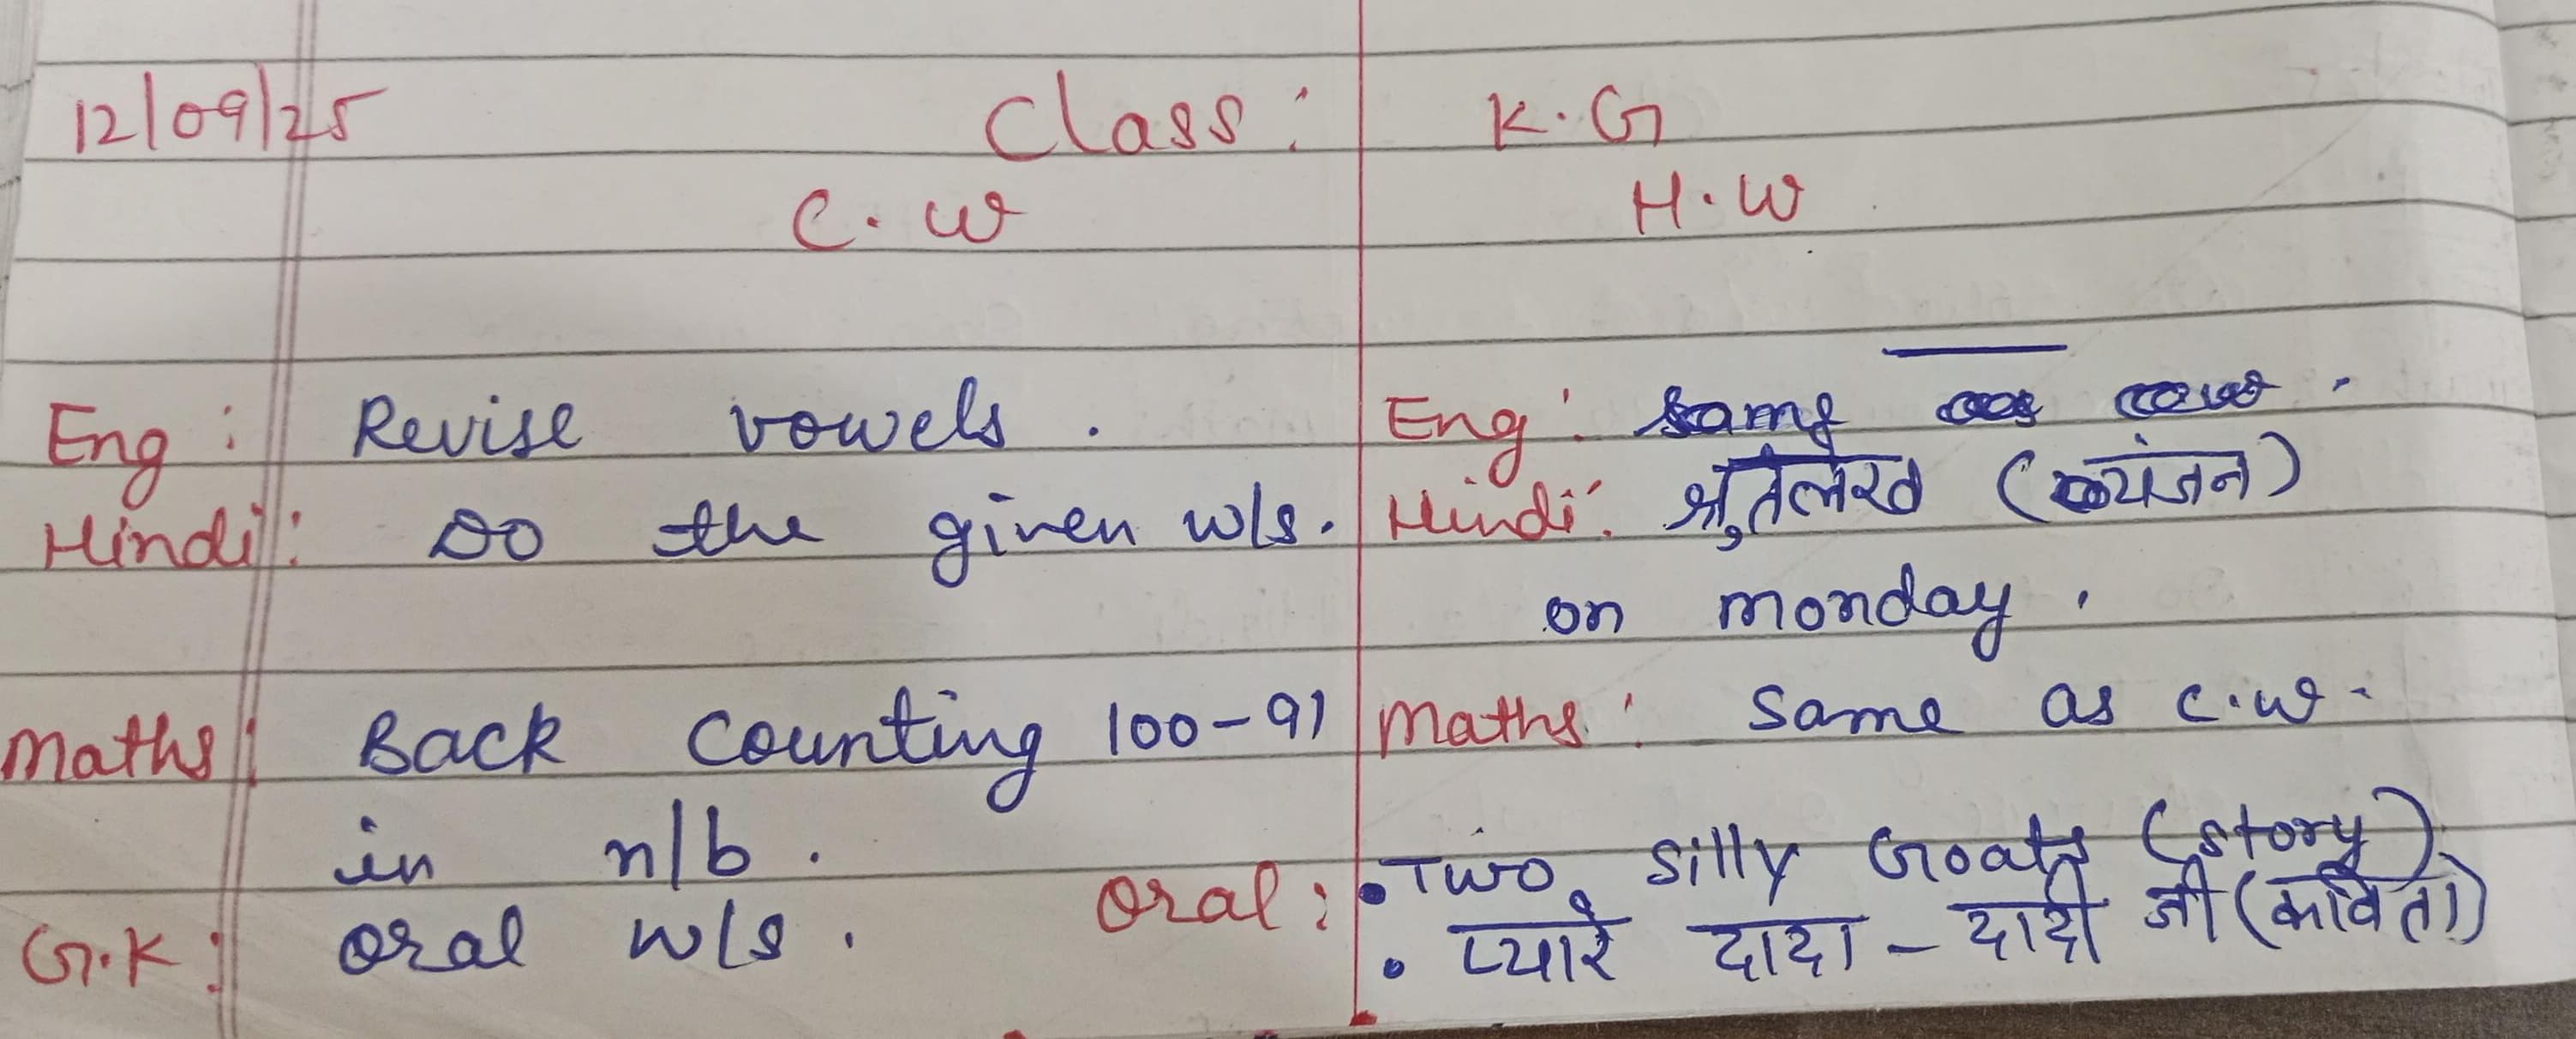 12/09/25 Class: K.G
C.W
Eng: Revise vowels.
Hindi: Do the given w/s.
Maths: Back counting 100-91
in n/b.
G.K: oral w/s.
H.W
Eng: same as
Hindi: श्रुतलेख (व्यंजन)
on monday.
Maths: Same as c.w.
Oral: • Two Silly Goats (story)
• प्यारे दादा - दादी जी (कविता)